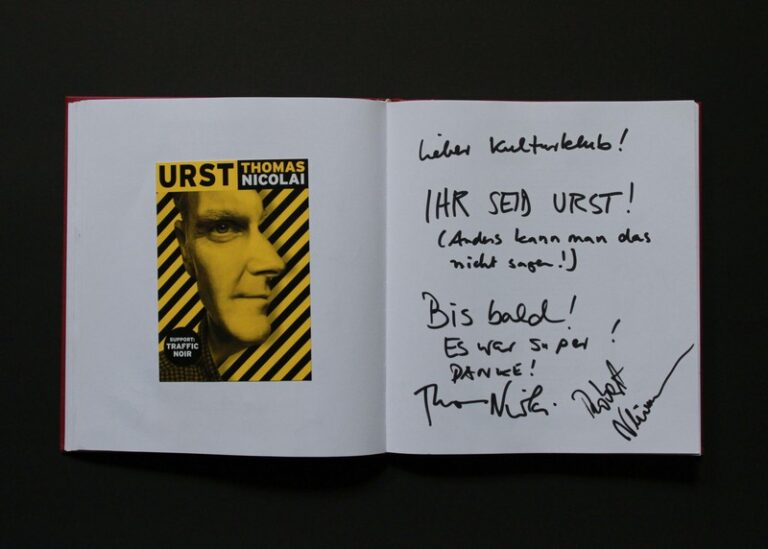 URST THOMAS
NICOLAI
SUPPORT:
TRAFFIC
NOIR
Lieber Kulturklub!
IHR SEID URST!
(Anders kann man das
nicht sagen!)
Bis bald!
Es war super!
DANKE!
Robert